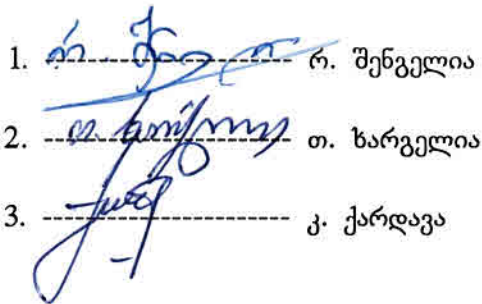 1. ---------------------- რ. შენგელია
2. ---------------------- თ. ხარგელია
3. ---------------------- კ. ქარდავა